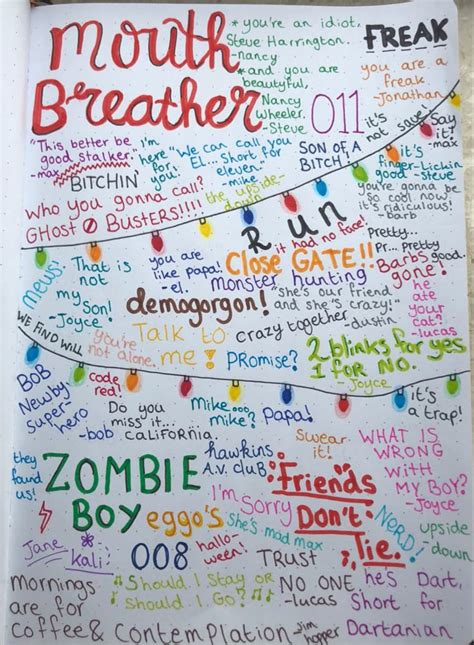 Mouth
Breather
*you're an idiot,
Steve Harrington.
-nancy
*and you are
beautiful,
Nancy
Wheeler.
-Steve
FREAK
you are a
freak.
-Jonathan
011
it's
not safe!
Say
it!
max
"This better be
good stalker."
-max
BITCHIN'
I'm
here
for
you.
"We can call you
EL... Short for
eleven."
-mike
SON OF A
BITCH!
it's
finger-lickin
good -steve
you're gonna be
so cool now,
it's ridiculous!
-barb
who you gonna call?
GHOST BUSTERS!!!!
the upside-
down
RUN
it had no face!
Close GATE!!
monster hunting
Pretty...
Pr... Pretty
good!
Barbs
gone!
he
ate
your
cat?
-lucas
mews!
That is
not
my Son!
-Joyce
you are
like papa!
-el.
demogorgon!
"She's our friend
and she's crazy!"
-dustin
crazy together
WE FIND WILL
You're
not alone.
Talk to
me!
Promise?
2 blinks for yes
1 for NO.
-Joyce
BOB
Newby-
super-
hero
code
red!
Do you
miss it...
-bob
CALIFORNIA
Mike...
mike?
Papa!
it's
a trap!
they
found
us!
ZOMBIE
BOY
hawkins
A.V. club
Swear
it!
WHAT IS
WRONG
WITH
MY BOY?
-Joyce
Friends
Don't
Lie.
eggo's
I'm
Sorry
She's mad max
NERD!
upside
down
Jane
kali
008
hallo-
ween!
TRUST
NO ONE
-lucas
he's Dart,
Short for
Dartanian
mornings
are for
coffee & Contemplation
-jim
hopper
Should I Stay or
Should I Go?